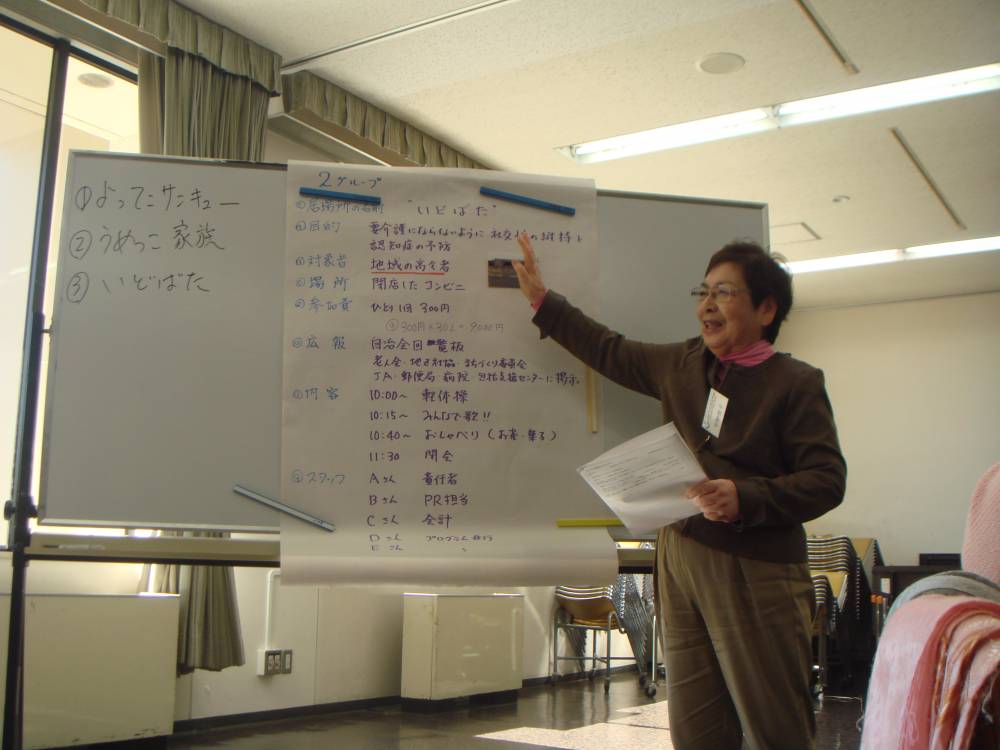 ①よってこサンキュー
②うめっこ家族
③いどばた
2グループ
居場所の名前 "いどばた"
目的 要介護にならないように 社交性の維持と
認知症の予防
対象者 地域の高令者
場所 閉店したコンビニ
参加費 ひとり1回 300円
300円×30人=9000円
広報 自治会回覧板
老人会・地区社協・まちづくり委員会
JA・郵便局・病院・包括支援センターに掲示
内容 10:00〜 軽体操
10:15〜 みんなで歌!!
10:40〜 おしゃべり(お茶・菓子)
11:30 閉会
スタッフ Aさん 責任者
Bさん PR担当
Cさん 会計
Dさん プログラム
Eさん 〃